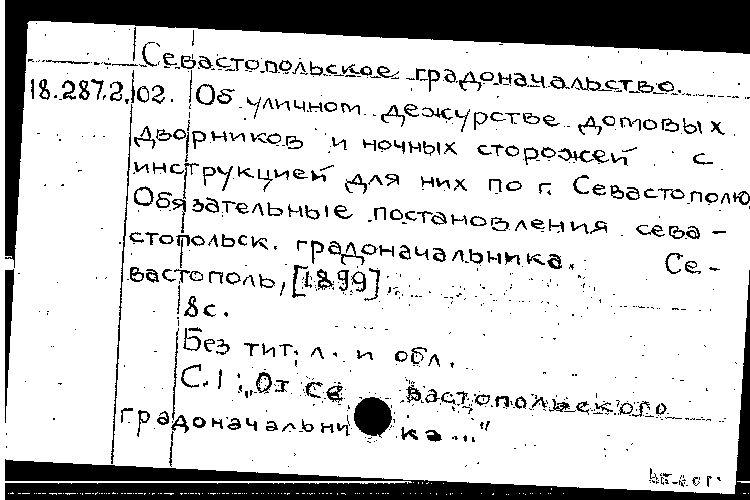 Севастопольское градоначальство.
18.287.2.102. Об уличном дежурстве домовых
дворников и ночных сторожей с
инструкцией для них по г. Севастополю
Обязательные постановления сева-
стопольск. градоначальника. Се-
вастополь, [1899].
8с.
Без тит. л. и обл.
С.1: „От севастопольского
градоначальника..."